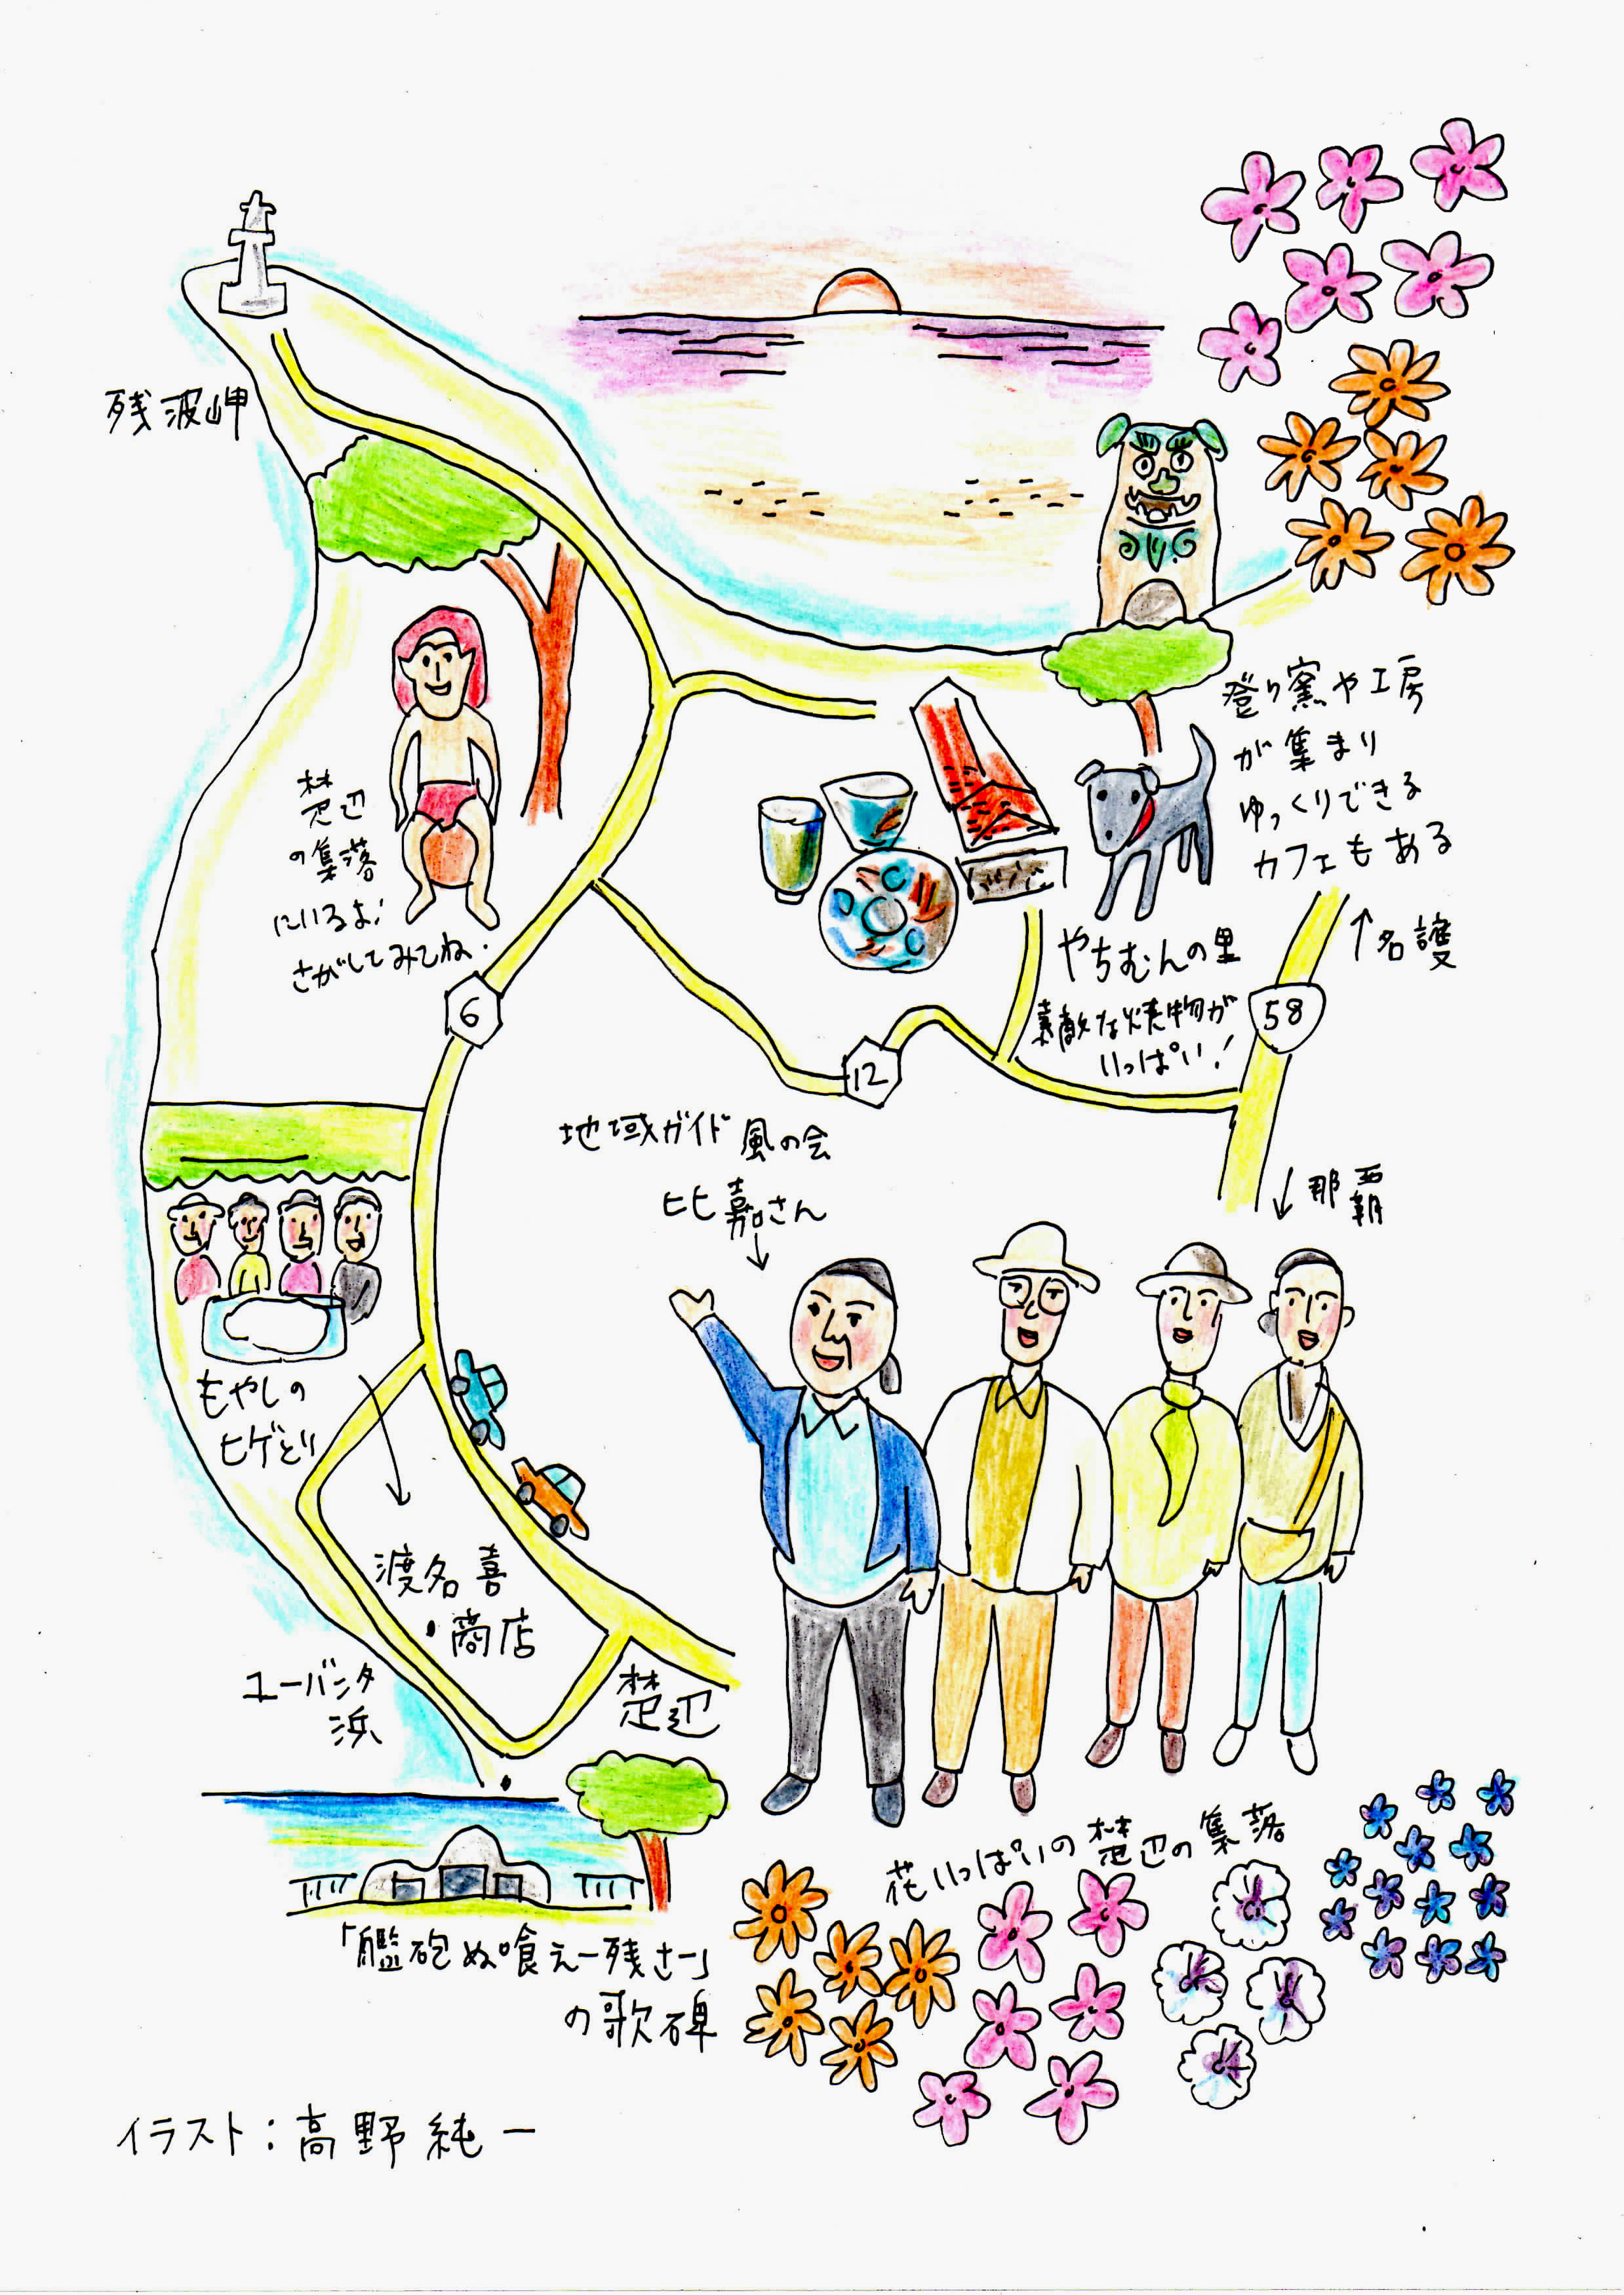 残波岬
楚辺
の集落
にいるよ!
さがしてみてね.
6
登り窯や工房
が集まり
ゆっくりできる
カフェもある
↑名護
やちむんの里
素敵な焼物が
いっぱい!
58
12
↓那覇
地域ガイド 風の会
比嘉さん
↓
もやしの
ヒゲとり
渡名喜
・商店
ユーバンタ
浜
楚辺
「艦砲ぬ喰えー残さー」
の歌碑
花いっぱいの楚辺の集落
イラスト:高野純一